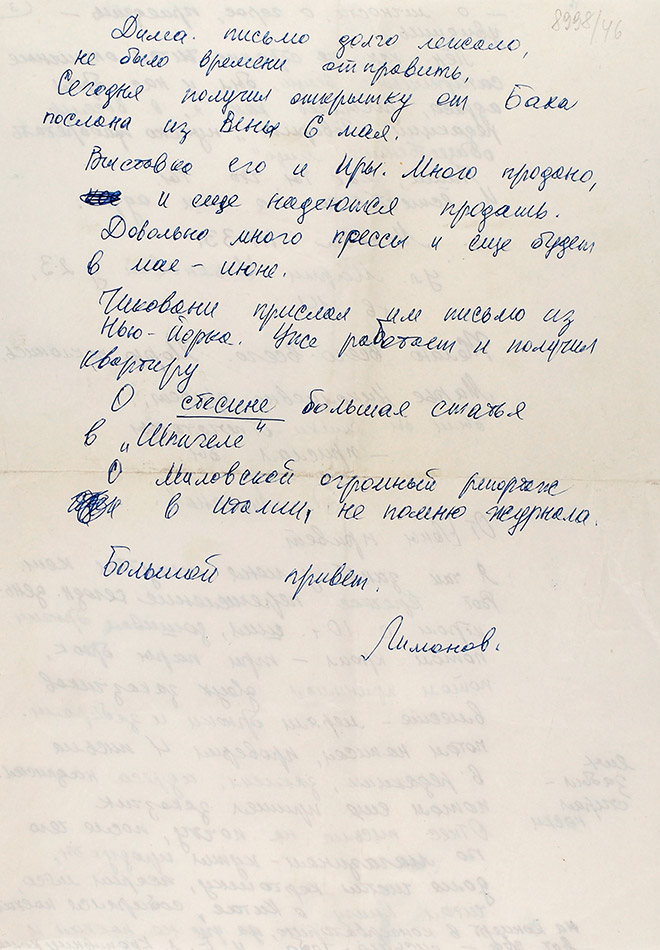 8998/46
Дима. письмо долго лежало,
не было времени отправить,
Сегодня получил открытку от Баха
послана из Вены 6 мая.
Выставка его и Иры. Много продано,
и еще надеются продать.
Довольно много прессы и еще будет
в мае – июне.
Чиковани прислал им письмо из
Нью-Йорка. Уже работает и получил
квартиру
О стесине большая статья
в „Шпигеле“
О Миловской огромный репортаж
в Италии, не помню журнала.
Большой привет.
Лимонов.